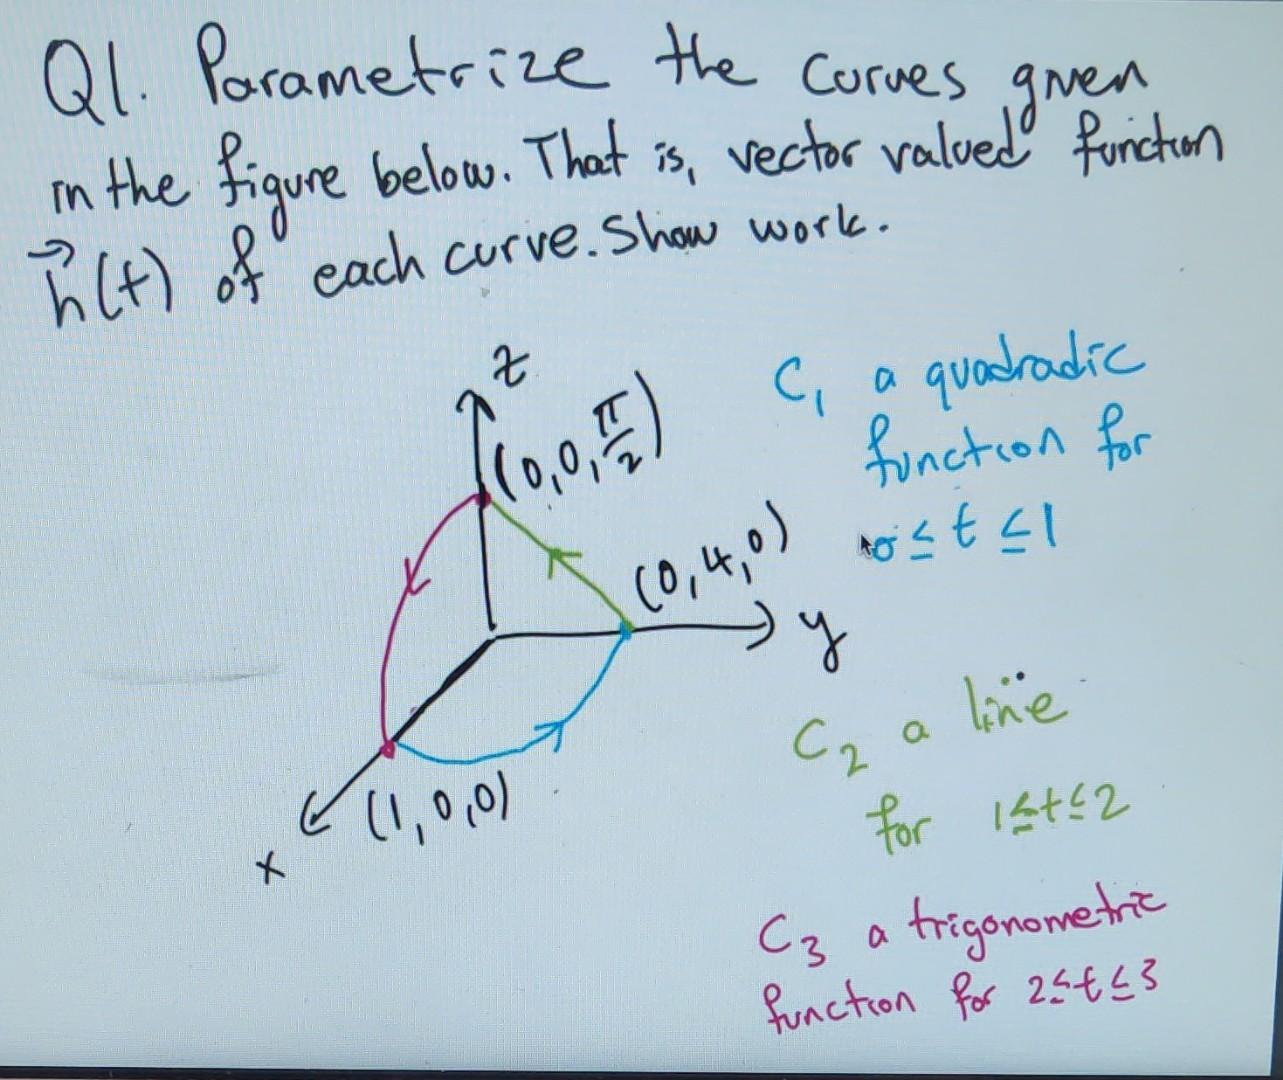 Q1. Parametrize the curves given
in the figure below. That is, vector valued function
h⃗(t) of each curve. Show work.
z
(0,0,π/2)
C₁ a quadradic
function for
0≤t≤1
(0,4,0)
y
C₂ a line
for 1≤t≤2
(1,0,0)
x
C₃ a trigonometric
function for 2≤t≤3